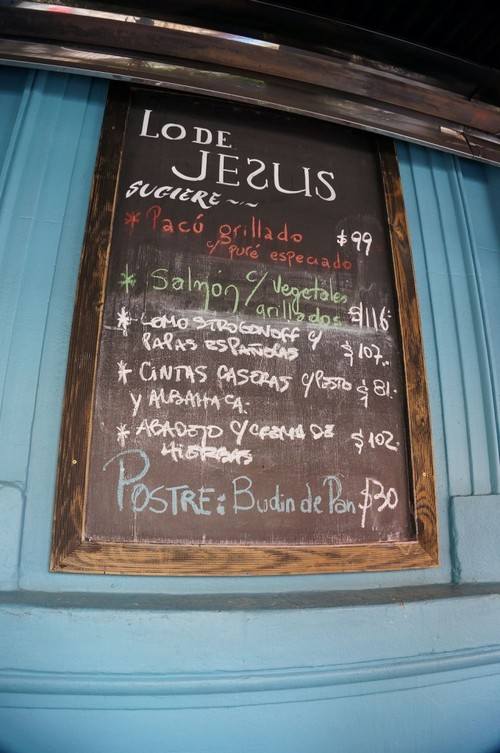 LO DE
JESUS
SUGIERE ~~
* Pacú grillado $99
c/ puré especiado
* Salmón c/ Vegetales
grillados $116.
* LOMO STROGONOFF c/
PAPAS ESPAÑOLAS $107.
* CINTAS CASERAS c/PESTO $81.
y ALBAHACA.
* ABADEJO c/ CREMA DE $102.
HIERBAS
POSTRE: Budin de Pan $30